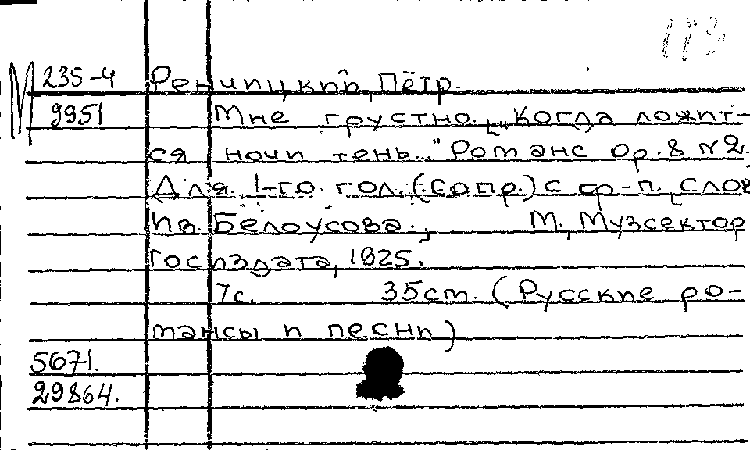 М 235-4 Ренчицкий, Пётр.
9951 Мне грустно. [„Когда ложит-
ся ночи тень.." Романс op. 8 № 2
Для 1-го гол. (сопр.) с ф-п. [Слова
Ив. Белоусова.] М., Музсектор
Госиздата, 1925.
7с. 35cm. (Русские ро-
мансы и песни)
5671.
29864.